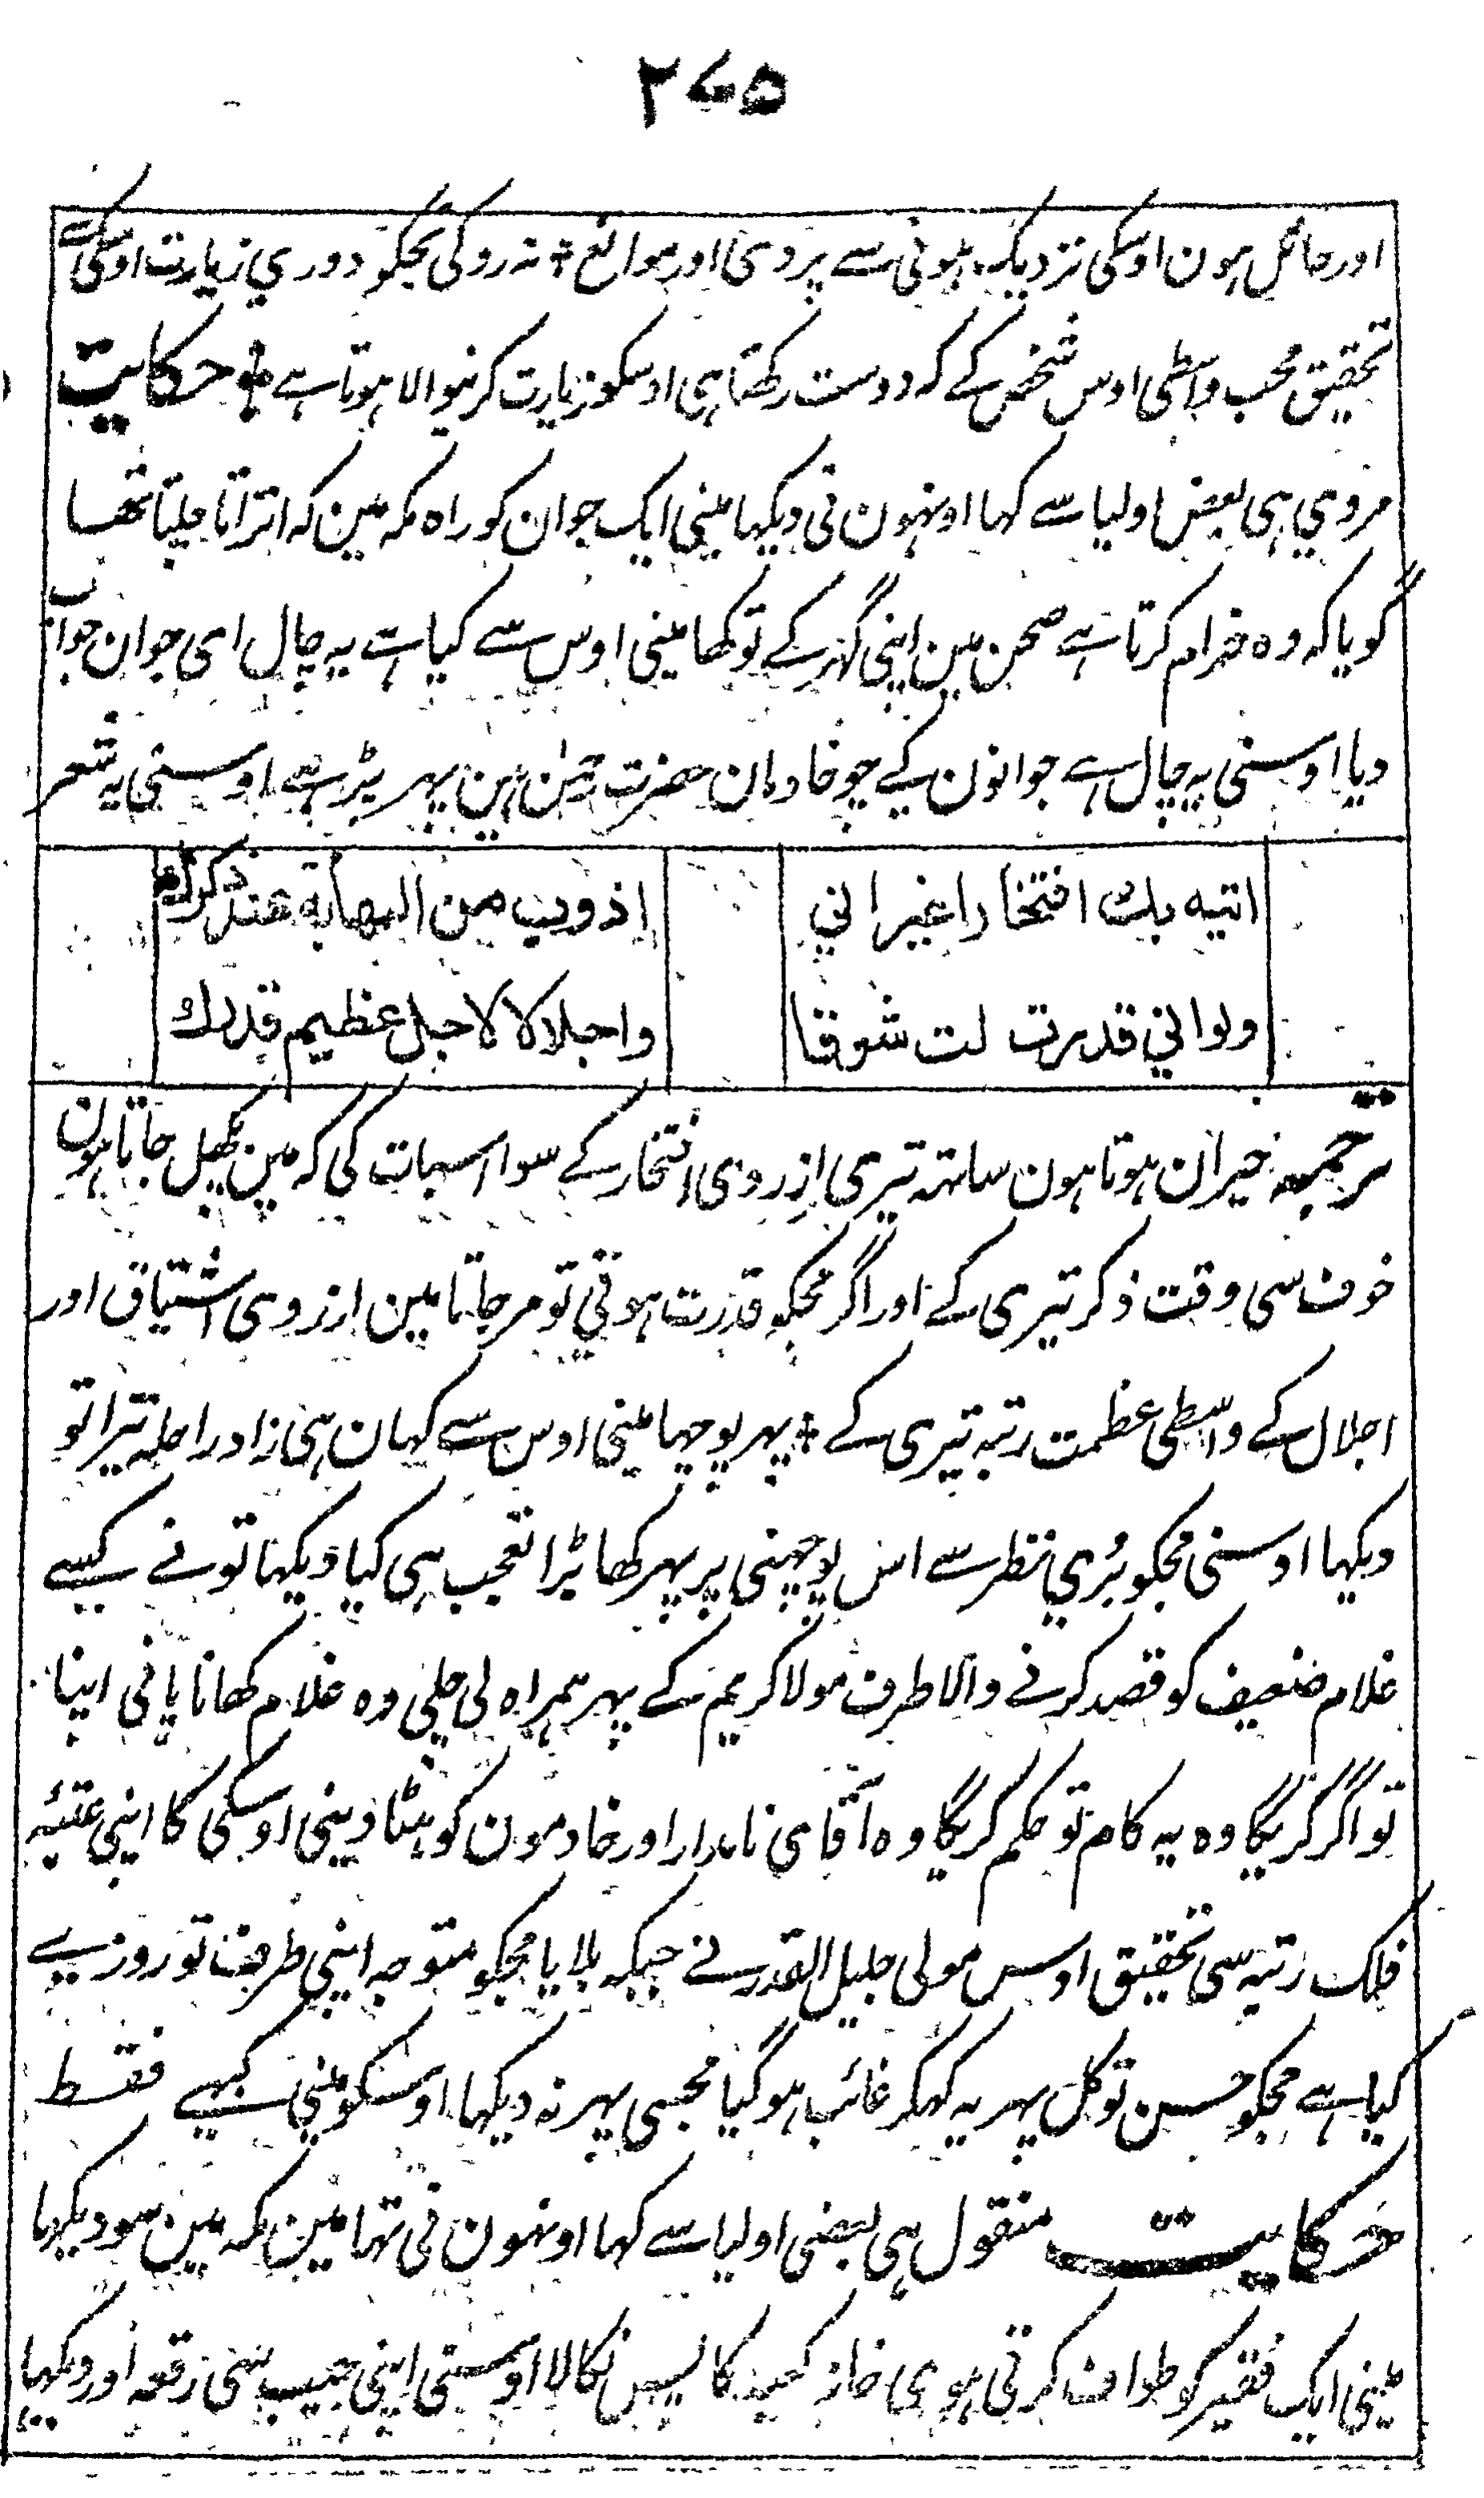 ۲۷۵
اور حائل ہون اوسکی نزدیک ہونی سے پردی اور موانع ٭ نہ روکی تجکو دوري زیارت اوسکی سے
تحقیق محب واسطی اوس شخص کے کہ دوست رکھتا ہی اوسکو زیارت کرنیوالا ہوتا ہے ٭ حکایت
مروي ہی بعض اولیا سے کہا اونہون نی دیکہا مینی ایک جوان کو راہ مکہ مین کہ اتراتا چلتا تھا
گویا کہ وہ خرام کرتا ہے صحن مین اپنی گہر کے تو کہا مینی اوس سے کیا ہے یہ چال ای جوان جواب
دیا اوسنی یہ چال ہے جوانون کے جو خادمان حضرت رحمن ہین پہر پڑہے اوسنی یہ شعر
اتیه بك افتخارا غیر اني اذوب من المهابة عند ذكرك
ولو اني قدرت لت شوقا واجلالا لاجل عظیم قدرك
ترجمہ حیران ہوتا ہون ساتہہ تیری از روی افتخار کے سوا اسبات کی کہ مین پگھل جاتا ہون
خوف سی وقت ذکر تیری کے اور اگر مجکو قدرت ہوتی تو مر جاتا مین از روی اشتیاق اور
اجلال کے واسطی عظمت رتبہ تیری کے ٭ پہر پوچہا مینی اوس سے کہان ہی زاد و راحلہ تیرا تو
دیکہا اوسنی مجکو بُري نظر سے اس پوچہنی پر پہر کہا بڑا تعجب ہی کیا دیکہا تونے کسے
غلام ضعیف کو قصد کرنے والا طرف مولا کریم کے پہر ہمراہ لی چلی وہ غلام کھانا پانی اپنا
تو اگر کریگا وہ یہ کام تو حکم کریگا وہ آقای نامدار اور خادمون کو ہٹا دینی اوسکی کا اپنی عتبۂ
فلک رتبہ سی تحقیق اوس مولی جلیل القدر نے جبکہ بلایا مجکو متوجہ اپنی طرف تو روزیے
کیا ہے مجکو حسن توکل پہر یہ کہکر غائب ہوگیا مجسی پہر نہ دیکہا اوسکو مینی کبہی فقط
حکایت منقول ہی بعضی اولیا سے کہا اونہون نی تہا مین مکہ مین سو دیکہا
مینی ایک فقیر کو طواف کرتی ہوی خانہ کعبہ کا پس نکالا اوسنی اپنی جیب سی رقعہ اور دیکہا